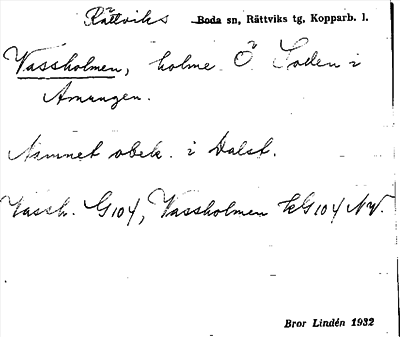 Rättviks Boda sn, Rättviks tg, Kopparb. l.
Vassholmen, holme Ö Soden i
Amungen.
Namnet obek. i Dalst.
Vassh. G104, Vassholmen kG104 NV.
Bror Lindén 1932